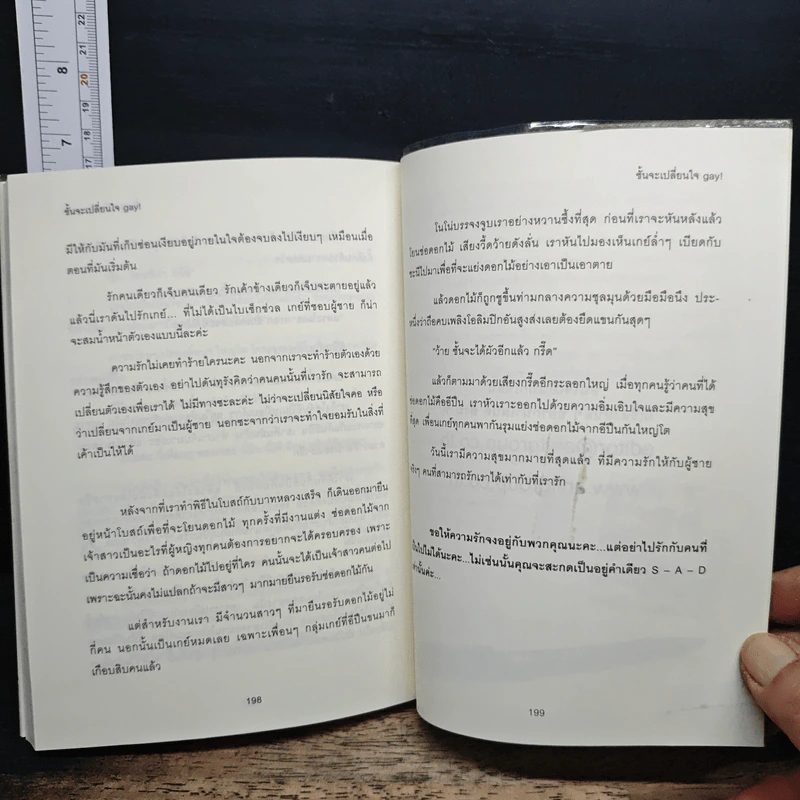 22
21
8
20
19
18
7
17
ชั้นจะเปลี่ยนใจ gay!
มีให้กับมันที่เก็บซ่อนเงียบอยู่ภายในใจต้องจบลงไปเงียบๆ เหมือนเมื่อ
ตอนที่มันเริ่มต้น
รักคนเดียวก็เจ็บคนเดียว รักเค้าข้างเดียวก็เจ็บจะตายอยู่แล้ว
แล้วนี่เราดันไปรักเกย์... ที่ไม่ได้เป็นไบเซ็กช่วล เกย์ที่ชอบผู้ชาย ก็น่า
จะสมน้ำหน้าตัวเองแบบนี้ละค่ะ
ความรักไม่เคยทำร้ายใครนะคะ นอกจากเราจะทำร้ายตัวเองด้วย
ความรู้สึกของตัวเอง อย่าไปดันทุรังคิดว่าคนคนนั้นที่เรารัก จะสามารถ
เปลี่ยนตัวเองเพื่อเราได้ ไม่มีทางซะละค่ะ ไม่ว่าจะเปลี่ยนนิสัยใจคอ หรือ
ว่าเปลี่ยนจากเกย์มาเป็นผู้ชาย นอกซะจากว่าเราจะทำใจยอมรับในสิ่งที่
เค้าเป็นให้ได้
หลังจากที่เราทำพิธีในโบสถ์กับบาทหลวงเสร็จ ก็เดินออกมายืน
อยู่หน้าโบสถ์เพื่อที่จะโยนดอกไม้ ทุกครั้งที่มีงานแต่ง ช่อดอกไม้จาก
เจ้าสาวเป็นอะไรที่ผู้หญิงทุกคนต้องการอยากจะได้ครอบครอง เพราะ
เป็นความเชื่อว่า ถ้าดอกไม้ไปอยู่ที่ใคร คนนั้นจะได้เป็นเจ้าสาวคนต่อไป
เพราะฉะนั้นคงไม่แปลกถ้าจะมีสาวๆ มากมายยืนรอรับช่อดอกไม้กัน
แต่สำหรับงานเรา มีจำนวนสาวๆ ที่มายืนรอรับดอกไม้อยู่ไม่
กี่คน นอกนั้นเป็นเกย์หมดเลย เฉพาะเพื่อนๆ กลุ่มเกย์ที่อีปืนขนมาก็
เกือบสิบคนแล้ว
198
ชั้นจะเปลี่ยนใจ gay!
โนโน่บรรจงจูบเราอย่างหวานซึ้งที่สุด ก่อนที่เราจะหันหลังแล้ว
โยนช่อดอกไม้ เสียงวี้ดว้ายดังลั่น เราหันไปมองเห็นเกย์ล่ำๆ เบียดกับ
ชะนีไปมาเพื่อที่จะแย่งดอกไม้อย่างเอาเป็นเอาตาย
แล้วดอกไม้ก็ถูกชูขึ้นท่ามกลางความชุลมุนด้วยมือมือนึง ประ-
หนึ่งว่าถือคบเพลิงโอลิมปิกอันสูงส่งเลยต้องยืดแขนกันสุดๆ
"ว้าย ชั้นจะได้ผัวอีกแล้ว กรี๊ด"
แล้วก็ตามมาด้วยเสียงกรี๊ดอีกระลอกใหญ่ เมื่อทุกคนรู้ว่าคนที่ได้
ช่อดอกไม้คืออีปืน เราหัวเราะออกไปด้วยความอิ่มเอิบใจและมีความสุข
ที่สุด เพื่อนเกย์ทุกคนพากันรุมแย่งช่อดอกไม้จากอีปืนกันใหญ่โต
วันนี้เรามีความสุขมากมายที่สุดแล้ว ที่มีความรักให้กับผู้ชาย
จริงๆ คนที่สามารถรักเราได้เท่ากับที่เรารัก
ขอให้ความรักจงอยู่กับพวกคุณนะคะ...แต่อย่าไปรักกับคนที่
เป็นไปไม่ได้นะคะ...ไม่เช่นนั้นคุณจะสะกดเป็นอยู่คำเดียว S – A – D
เท่านั้นค่ะ...
199